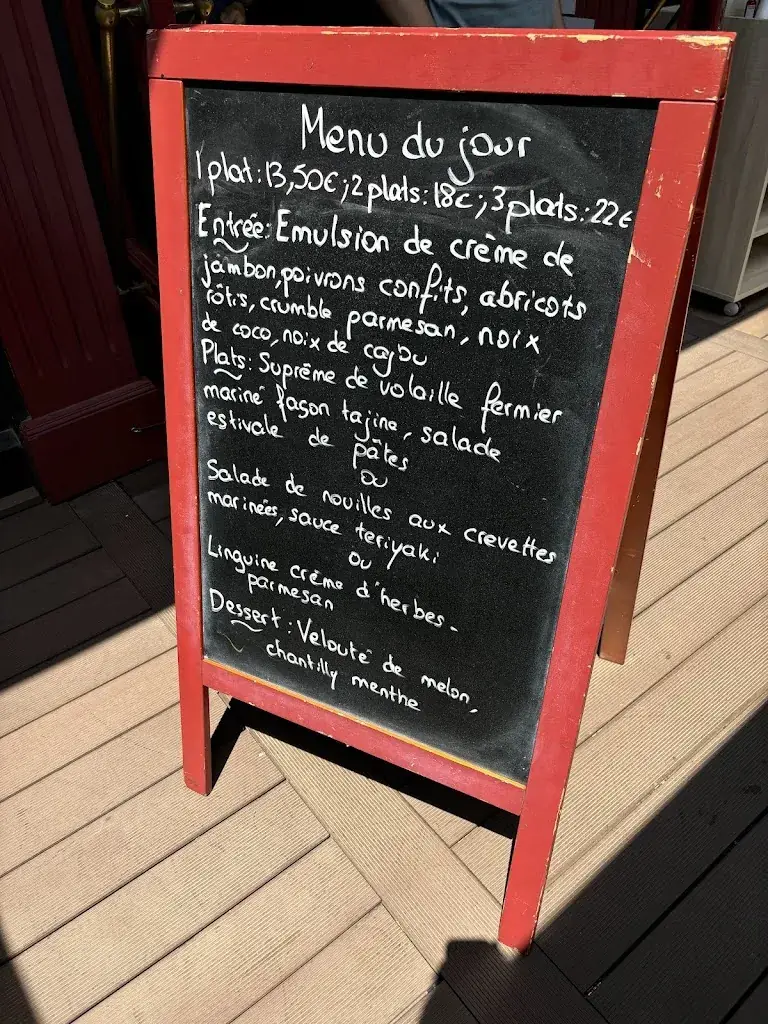 Menu du jour
1 plat : 13,50€ ; 2 plats : 18€ ; 3 plats : 22€
Entrée : Emulsion de crème de
jambon, poivrons confits, abricots
rôtis, crumble parmesan, noix
de coco, noix de cajou
Plats : Suprême de volaille fermier
mariné façon tajine, salade
estivale de pâtes
ou
Salade de nouilles aux crevettes
marinées, sauce teriyaki
ou
Linguine crème d'herbes -
parmesan
Dessert : Velouté de melon,
chantilly menthe